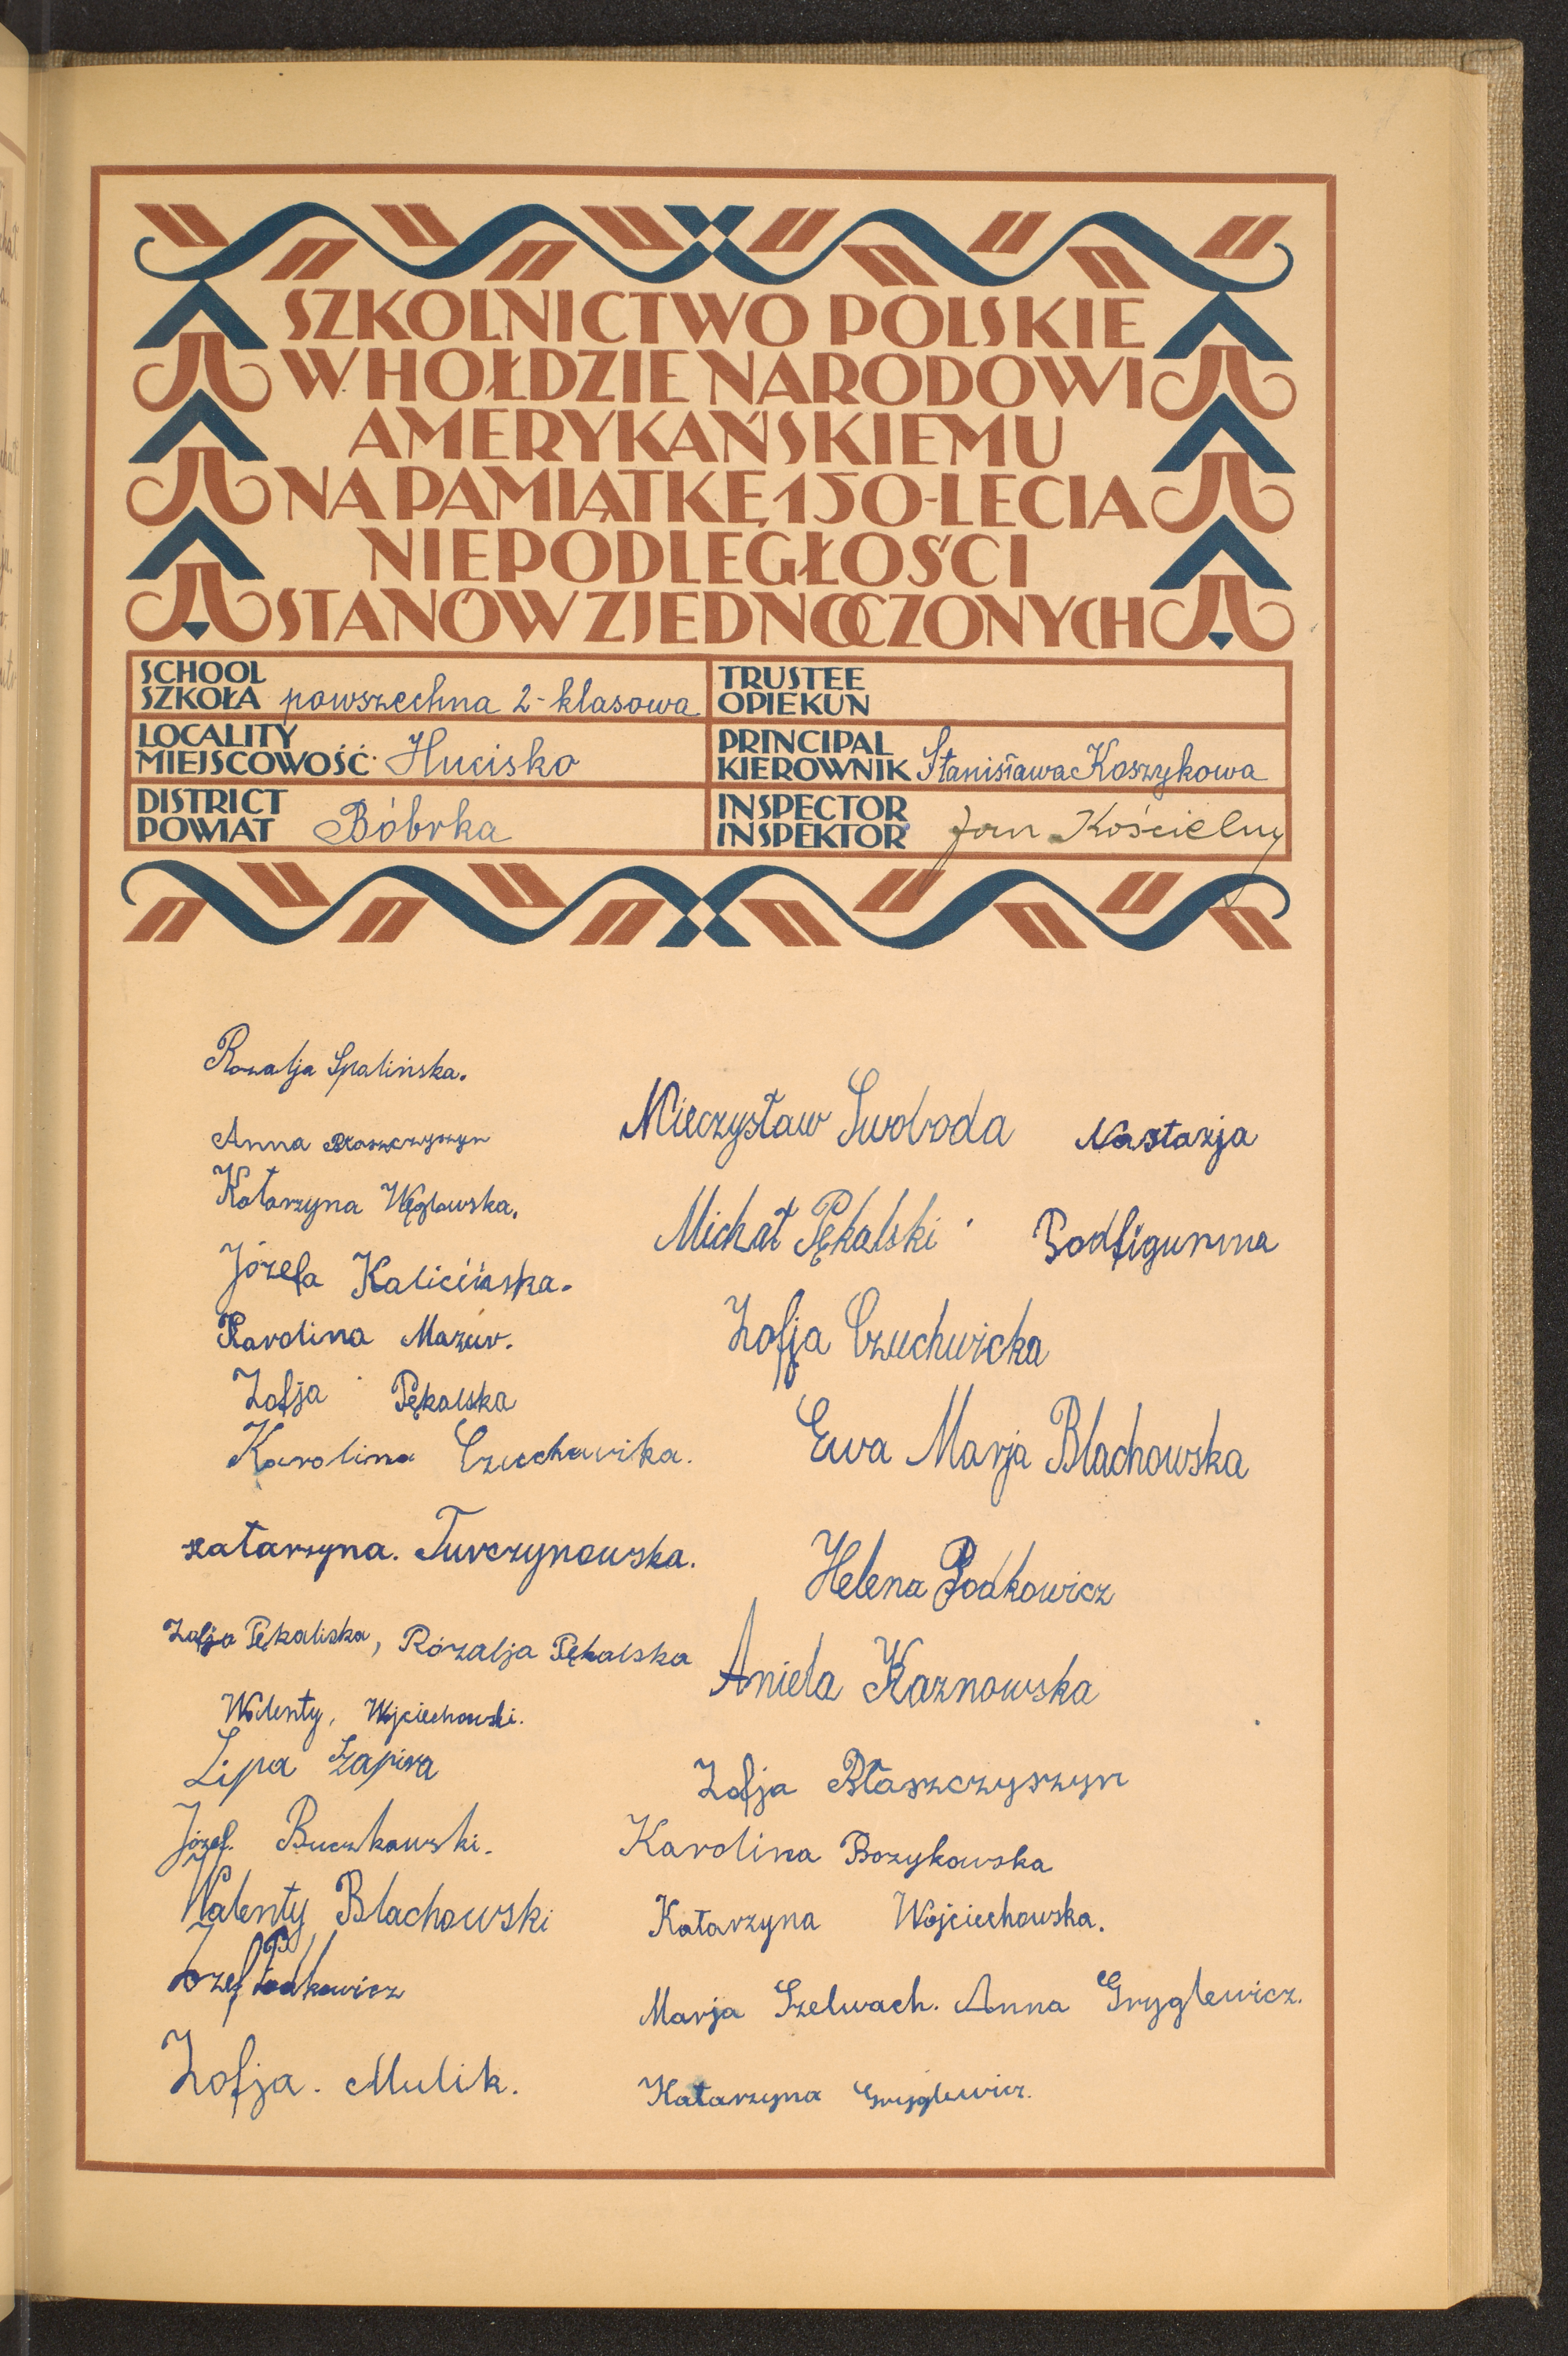 SZKOLNICTWO POLSKIE
W HOŁDZIE NARODOWI
AMERYKAŃSKIEMU
NA PAMIĄTKĘ 150-LECIA
NIEPODLEGŁOŚCI
STANÓW ZJEDNOCZONYCH
SCHOOL
SZKOŁA powszechna 2-klasowa
TRUSTEE
OPIEKUN
LOCALITY
MIEJSCOWOŚĆ Hucisko
PRINCIPAL
KIEROWNIK Stanisława Koszykowa
DISTRICT
POWIAT Bóbrka
INSPECTOR
INSPEKTOR Jan Kościelny
Rozalja Spalińska.
Anna Błaszczyszyn
Katarzyna Węglowska.
Józefa Kalicińska.
Karolina Mazur.
Zofja Pękalska
Karolina Czuchwicka.
Katarzyna. Turczynowska.
Zofja Pękaliska, Rózalja Pękalska
Walenty, Wojciechowski.
Lipa Szapira
Józef. Buczkowski.
Walenty Blachowski
Józef Podkowicz
Zofja. Mulik.
Mieczysław Swoboda
Nastazja
Michał Pękalski
Podfigurna
Zofja Czuchwicka
Ewa Marja Blachowska
Helena Podkowicz
Aniela Kaznowska
Zofja Błaszczyszyn
Karolina Bozykowska
Katarzyna Wojciechowska.
Marja Szelwach. Anna Gryglewicz.
Katarzyna Gryglewicz.